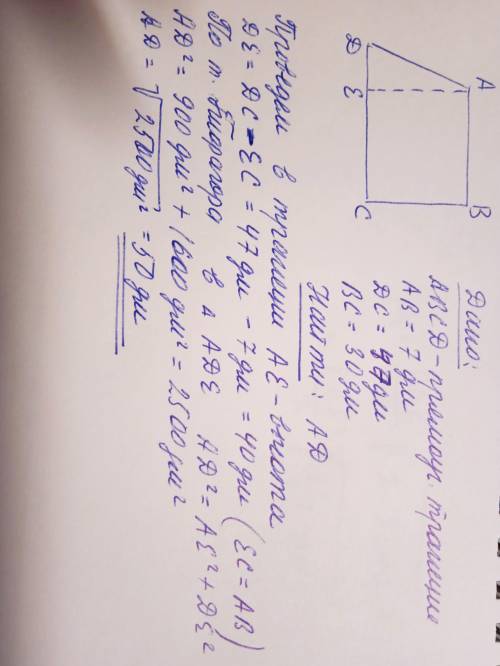 A B
D E C
Дано:
ABCD - прямоуг. трапеция
AB = 7 дм
DC = 47 дм
BC = 30 дм
Найти: AD
Проведем в трапеции AE - высота
DE = DC - EC = 47 дм - 7 дм = 40 дм (EC = AB)
По т. Пифагора в Δ ADE AD² = AE² + DE²
AD² = 900 дм² + 1600 дм² = 2500 дм²
AD = √2500 дм² = 50 дм